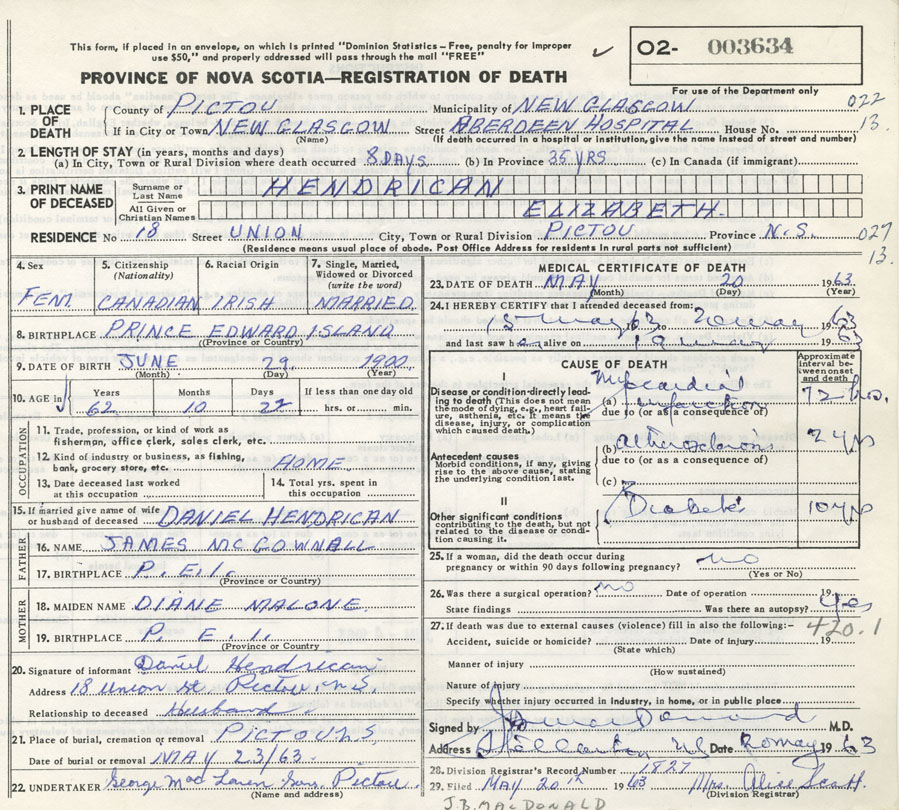 This form, if placed in an envelope, on which is printed "Dominion Statistics – Free, penalty for improper
use $50," and properly addressed will pass through the mail "FREE"
PROVINCE OF NOVA SCOTIA—REGISTRATION OF DEATH
O2- 003634
For use of the Department only
1. PLACE OF DEATH
County of PICTOU Municipality of NEW GLASGOW 022
If in City or Town NEW GLASGOW Street ABERDEEN HOSPITAL House No. 13.
(Name) (If death occurred in a hospital or institution, give the name instead of street and number)
2. LENGTH OF STAY (in years, months and days)
(a) In City, Town or Rural Division where death occurred 8 DAYS (b) In Province 35 YRS (c) In Canada (if immigrant)
3. PRINT NAME OF DECEASED
Surname or Last Name HENDRICAN
All Given or Christian Names ELIZABETH.
RESIDENCE No 18 Street UNION City, Town or Rural Division PICTOU Province N.S. 027
13.
(Residence means usual place of abode. Post Office Address for residents in rural parts not sufficient)
4. Sex FEM.
5. Citizenship (Nationality) CANADIAN
6. Racial Origin IRISH
7. Single, Married, Widowed or Divorced (write the word) MARRIED.
8. BIRTHPLACE PRINCE EDWARD ISLAND
(Province or Country)
9. DATE OF BIRTH JUNE 29 1900
(Month) (Day) (Year)
10. AGE in Years Months Days If less than one day old
62 10 22 hrs. or min.
OCCUPATION
11. Trade, profession, or kind of work as
fisherman, office clerk, sales clerk, etc.
12. Kind of industry or business, as fishing,
bank, grocery store, etc. HOME
13. Date deceased last worked
at this occupation
14. Total yrs. spent in
this occupation
15. If married give name of wife
or husband of deceased DANIEL HENDRICAN
FATHER
16. NAME JAMES MCGOWNALL
17. BIRTHPLACE P.E.I.
(Province or Country)
MOTHER
18. MAIDEN NAME DIANE MALONE
19. BIRTHPLACE P. E. I.
(Province or Country
20. Signature of informant Daniel Hendrican
Address 18 Union St. Pictou. N S.
Relationship to deceased Husband
21. Place of burial, cremation or removal PICTOU N.S
Date of burial or removal MAY 23/63
22. UNDERTAKER George Mac Laren Sons Pictou
(Name and address)
MEDICAL CERTIFICATE OF DEATH
23. DATE OF DEATH MAY 20 1963
(Month) (Day) (Year)
24. I HEREBY CERTIFY that I attended deceased from:
15 May 63 to 20 May 1963
and last saw her alive on 19 63
CAUSE OF DEATH
Approximate interval between onset and death
I
Disease or condition directly leading to death (This does not mean the mode of dying, e.g., heart failure, asthenia, etc. It means the disease, injury, or complication which caused death.)
(a) Myocardial infarction 72 hrs.
due to (or as a consequence of)
Antecedent causes
Morbid conditions, if any, giving rise to the above cause, stating the underlying condition last.
(b) atherosclerosis 2 yrs
due to (or as a consequence of)
(c)
II
Other significant conditions
contributing to the death, but not related to the disease or condition causing it.
Diabetes 10 yrs
25. If a woman, did the death occur during
pregnancy or within 90 days following pregnancy? no
(Yes or No)
26. Was there a surgical operation? no Date of operation 19
State findings Was there an autopsy? yes
27. If death was due to external causes (violence) fill in also the following:– 420.1
Accident, suicide or homicide? Date of injury 19
(State which)
Manner of injury
(How sustained)
Nature of injury
Specify whether injury occurred in industry, in home, or in public place
Signed by M.D.
Address Stellarton NS Date 20 May 1963
28. Division Registrar's Record Number 1827
29. Filed MAY 20th 1963 Mrs. Alice Scott.
(Division Registrar)
J.B. MACDONALD